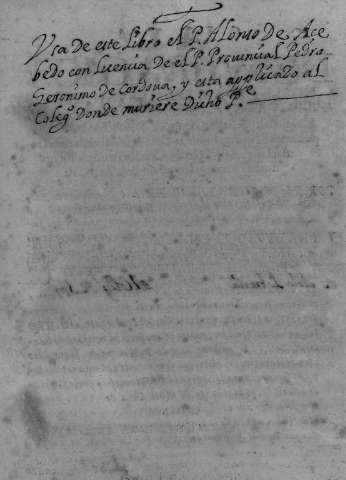 Usa de este Libro el P. Alonso De Aze
bedo con licencia de el P. Provincial Pedro
Geronimo de Cordova, y esta applicado al
Coleg.º donde muriere Dicho P.e